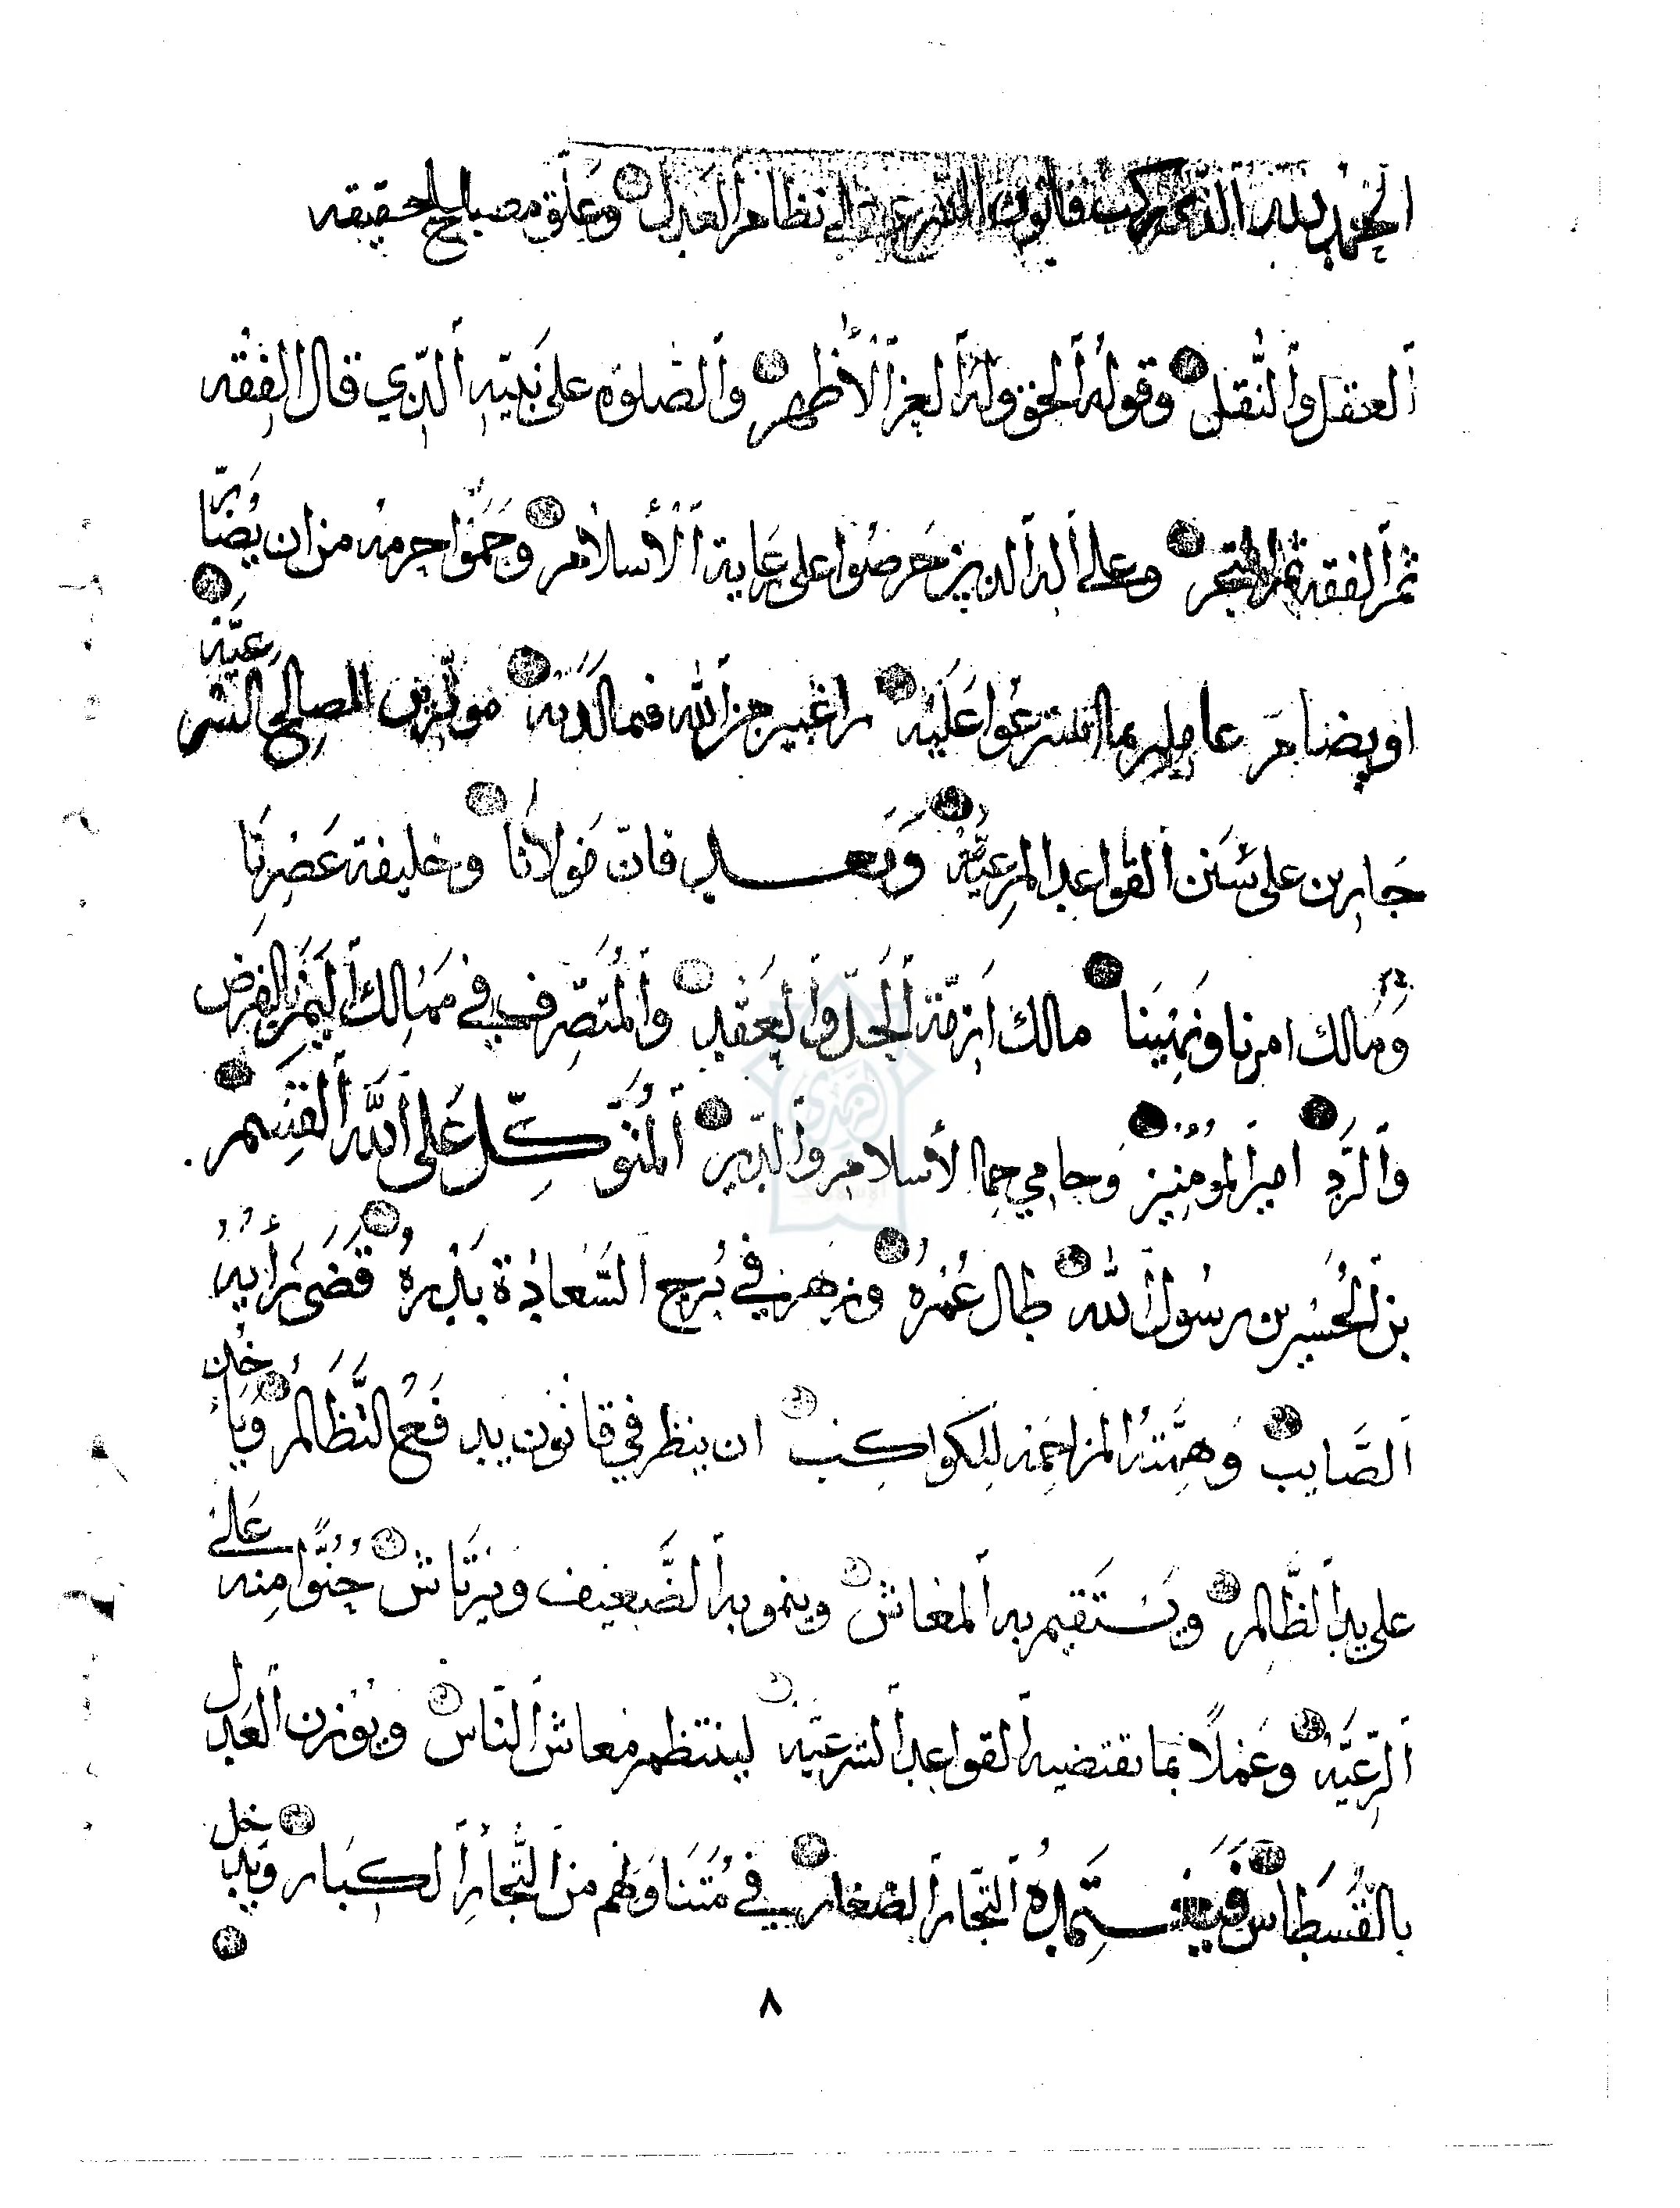 الحمد لله الذي ركب قانون الشرع على نظام العدل وعلق مصابيح الحقيقه
العقل والنقل وقوله الحق وله العز الأظهر والصلوة على نبيه الذي قال الفقه
ثم الفقه ثم المتجر وعلى آله الذين حرصوا على رعاية الأسلام وحموا حرمه من ان يضار
او يضام عاملهم بما استرعوا عليه راغبين من الله فيما لديه مؤثرين المصالح الشرعيه
جارين على سنن القواعد المرعيه وبعد فان مولانا وخليفة عصرنا
ومالك امرنا ونهينا مالك ازمّة الحلّ والعقد والمتصرف في ممالك اليمن بالقبض
والرد امير المؤمنين وحامي حما الأسلام والدين المتوكل على الله القسم
بن الحسين بن رسول الله طال عمره وزهر في برج السعادة بدره قضى رأيه
الصايب وهمته المزاحمه للكواكب ان ينظر في قانون يدفع التظالم ويأخذ
على يد الظالم ويستقيم به المعاش وينمو به الضعيف ويرتاش حنوا منه على
الرعيه وعملا بما تقتضيه القواعد الشرعيه لينتظم معاش الناس ويوزن العدل
بالقسطاس التجار الصغار في متناولهم من التجار الكبار ويدخل
٨